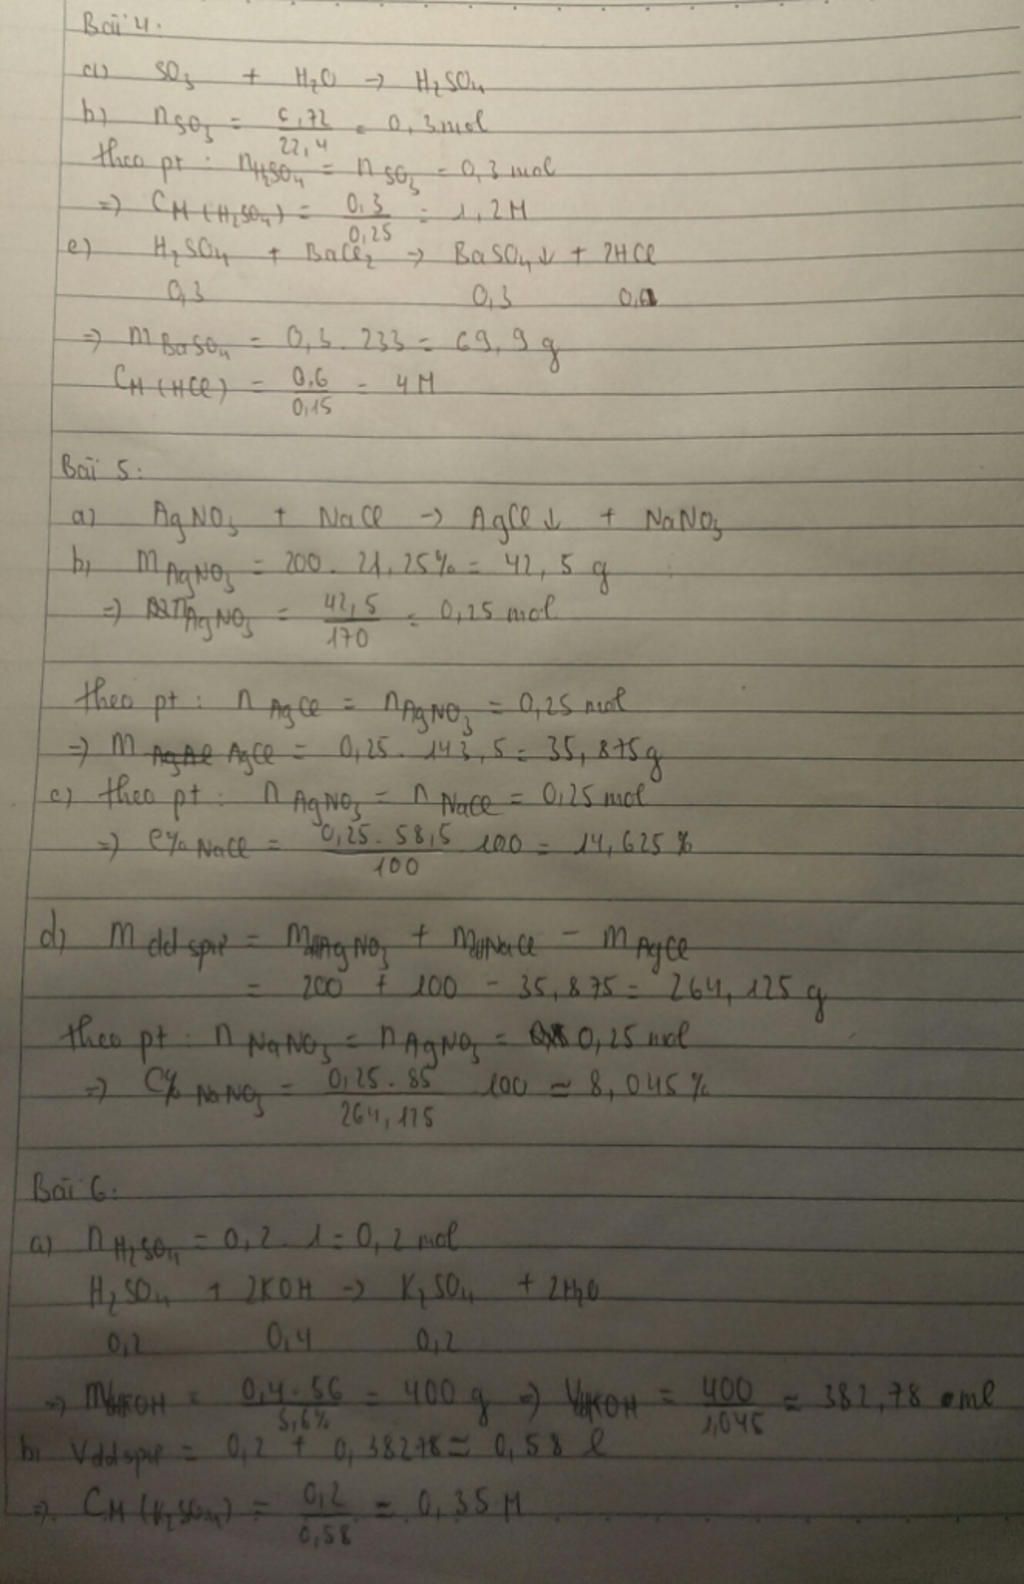 Bài 4:
a) SO₃ + H₂O → H₂SO₄
b) nSO₃ = 6,72/22,4 = 0,3mol
theo pt : nH₂SO₄ = nSO₃ = 0,3 mol
=> CM(H₂SO₄) = 0,3/0,25 = 1,2M
c) H₂SO₄ + BaCl₂ → BaSO₄↓ + 2HCl
0,3 0,3
=> mBaSO₄ = 0,3 . 233 = 69,9g
CM(HCl) = 0,6/0,15 = 4M
Bài 5:
a) AgNO₃ + NaCl → AgCl↓ + NaNO₃
b) mAgNO₃ = 200 . 21,25% = 42,5 g
=> nAgNO₃ = 42,5/170 = 0,25 mol
theo pt : nAgCl = nAgNO₃ = 0,25 mol
=> mAgCl = 0,25 . 143,5 = 35,875g
c) theo pt : nAgNO₃ = nNaCl = 0,25 mol
=> C%NaCl = 0,25 . 58,5/100 100 = 14,625%
d) mdd spư = mddAgNO₃ + mddNaCl - mAgCl
= 200 + 100 - 35,875 = 264,125 g
theo pt : nNaNO₃ = nAgNO₃ = 0,25 mol
=> C%NaNO₃ = 0,25 . 85/264,125 100 ≈ 8,045%
Bài 6:
a) nH₂SO₄ = 0,2 . 1 = 0,2 mol
H₂SO₄ + 2KOH → K₂SO₄ + 2H₂O
0,2 0,4 0,2
=> mddKOH = 0,4 . 56/5,6% = 400 g => VddKOH = 400/1,045 ≈ 382,78 ml
b) Vdd spư = 0,2 + 0,38278 ≈ 0,58 l
=> CM(K₂SO₄) = 0,2/0,58 ≈ 0,35M